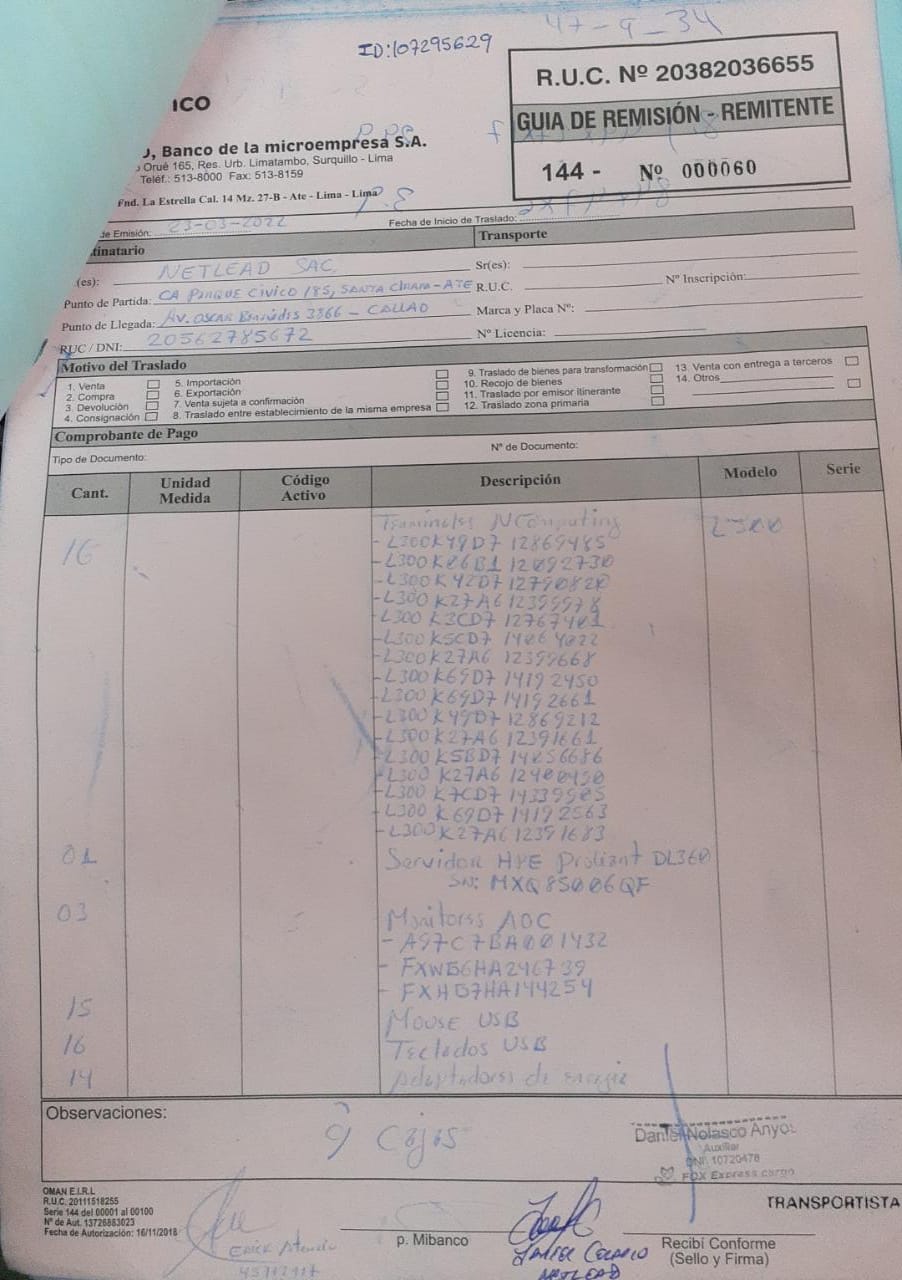 47-9-34
ID:107295629
ICO
R.U.C. Nº 20382036655
GUIA DE REMISIÓN - REMITENTE
144 - Nº 000060
, Banco de la microempresa S.A.
Orué 165, Res. Urb. Limatambo, Surquillo - Lima
Teléf.: 513-8000 Fax: 513-8159
Fnd. La Estrella Cal. 14 Mz. 27-B - Ate - Lima - Lima
de Emisión: 23-03-2022 Fecha de Inicio de Traslado:
tinatario Transporte
(es): NETLEAD SAC Sr(es):
Punto de Partida: CA PARQUE CIVICO 185, SANTA CLARA-ATE R.U.C. Nº Inscripción:
Punto de Llegada: AV. OSCAR 3866 - CALLAO Marca y Placa Nº:
RUC / DNI: 20562785672 Nº Licencia:
Motivo del Traslado
1. Venta 5. Importación 9. Traslado de bienes para transformación 13. Venta con entrega a terceros
2. Compra 6. Exportación 10. Recojo de bienes 14. Otros
3. Devolución 7. Venta sujeta a confirmación 11. Traslado por emisor itinerante
4. Consignación 8. Traslado entre establecimiento de la misma empresa 12. Traslado zona primaria
Comprobante de Pago
Tipo de Documento: Nº de Documento:
Cant. Unidad Medida Código Activo Descripción Modelo Serie
16 Terminales NComputing L300
- L300K49D7 12869485
- L300K06B1 12092730
- L300K42D7 12790820
- L300 K27A6 12399978
- L300 K3CD7 12767401
- L300K5CD7 14064022
- L300K27A6 12399668
- L300 K69D7 14192450
- L300 K69D7 14192661
- L300 K49D7 12869212
- L300K27A6 12391661
- L300 K5BD7 14056686
- L300 K27A6 12400450
- L300 K7CD7 14339905
- L300 K69D7 14192563
- L300K27A6 12391683
01 Servidor HPE Proliant DL360
SN: MXQ85006QF
03 Monitores AOC
- A97C7BA001432
- FXWG6HA246739
- FXHG7HA144254
15 Mouse USB
16 Teclados USB
14 Adaptadores de energia
Observaciones: 9 Cajas
Daniel Nolasco Anyo
Auxiliar
DNI: 10720478
FOX Express cargo
OMAN E.I.R.L
R.U.C. 20111518255
Serie 144 del 00001 al 00100
Nº de Aut. 13726883023
Fecha de Autorización: 16/11/2018
TRANSPORTISTA
p. Mibanco
Recibí Conforme
(Sello y Firma)
Erick
NETLEAD